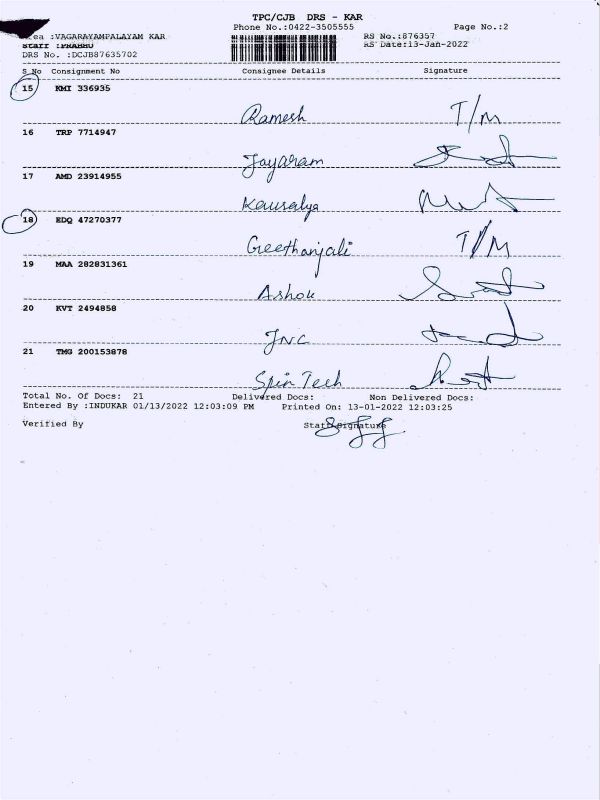 TPC/CJB DRS - KAR
Phone No.:0422-3505555 Page No.:2
Area :VAGARAYAMPALAYAM KAR RS No.:876357
Staff :PRABHU RS Date:13-Jan-2022
DRS No. :DCJB87635702
S No Consignment No Consignee Details Signature
15 KMI 336935
Ramesh T/M
16 TRP 7714947
Jayaram
17 AMD 23914955
Kausalya
18 EDQ 47270377
Geethanjali T/M
19 MAA 282831361
Ashok
20 KVT 2494858
JNC
21 TMG 200153878
Spin Tech
Total No. Of Docs: 21 Delivered Docs: Non Delivered Docs:
Entered By :INDUKAR 01/13/2022 12:03:09 PM Printed On: 13-01-2022 12:03:25
Verified By Staff Signature